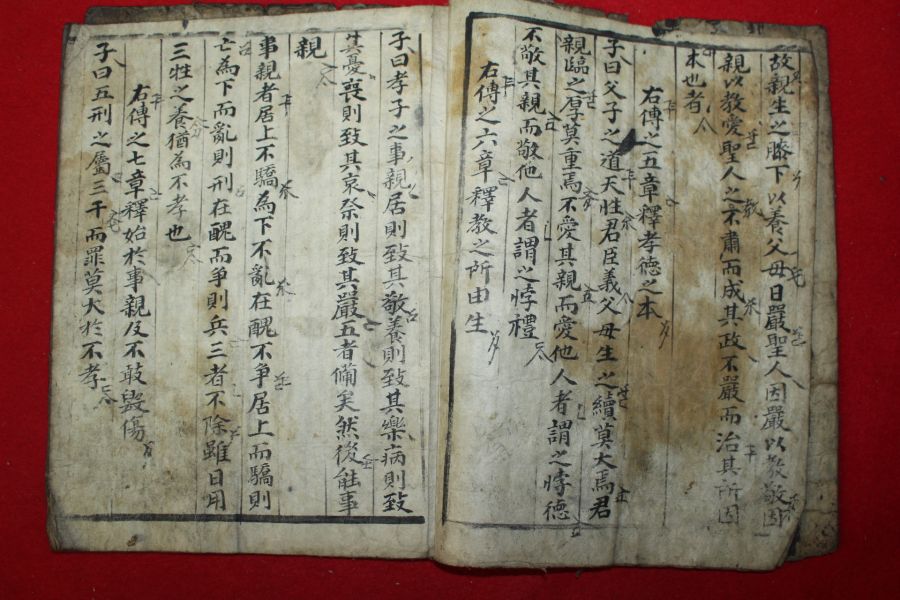 故親生之膝下以養父母日嚴聖人因嚴以教敬因
親以教愛聖人之不肅而成其政不嚴而治其所因
本也者
右傳之五章釋孝德之本
子曰父子之道天性君臣義父母生之續莫大焉君
親臨之厚莫重焉不愛其親而愛他人者謂之悖德
不敬其親而敬他人者謂之悖禮
右傳之六章釋教之所由生
子曰孝子之事親居則致其敬養則致其樂病則致
其憂喪則致其哀祭則致其嚴五者備矣然後能事
親
事親者居上不驕為下不亂在醜不爭居上而驕則
亡為下而亂則刑在醜而爭則兵三者不除雖日用
三牲之養猶為不孝也
右傳之七章釋始於事親及不敢毀傷
子曰五刑之屬三千而罪莫大於不孝